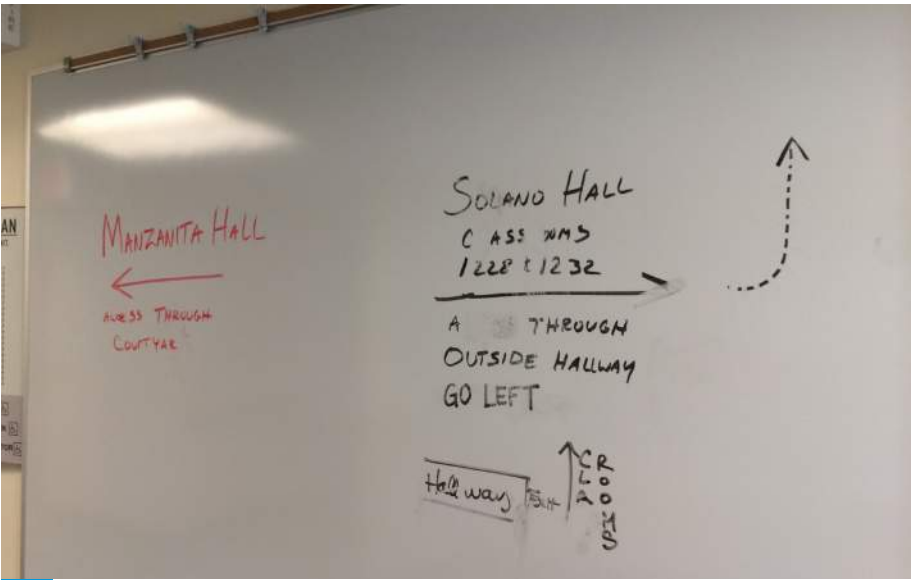 MANZANITA HALL
ACCESS THROUGH
COURTYAR
SOLANO HALL
C ASS RMS
1228 & 1232
A THROUGH
OUTSIDE HALLWAY
GO LEFT
Hallway
CLA
ROOMS
AN